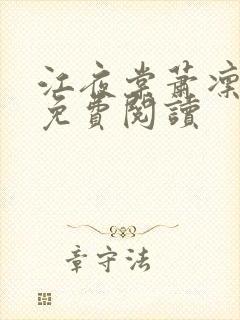 江夜棠蕭凜
免費閱讀
章守法